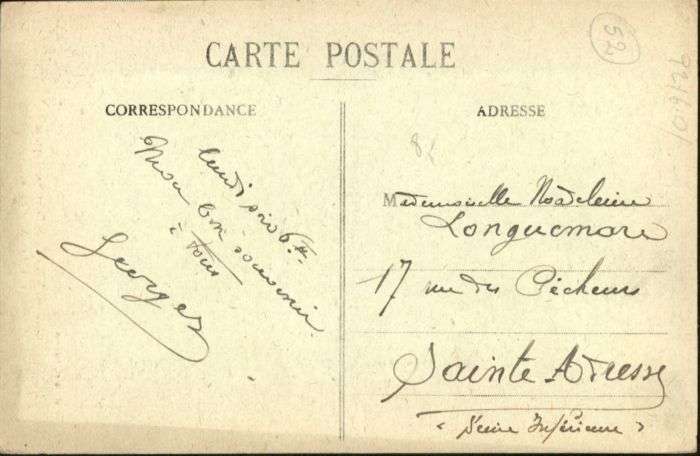 CARTE POSTALE
CORRESPONDANCE
ADRESSE
52
lundi soir 6 h
Mon bon souvenir
à tous
Georges
Mademoiselle Madeleine
Longuemare
17 rue des Pêcheurs
Sainte Adresse
(Seine Inférieure)